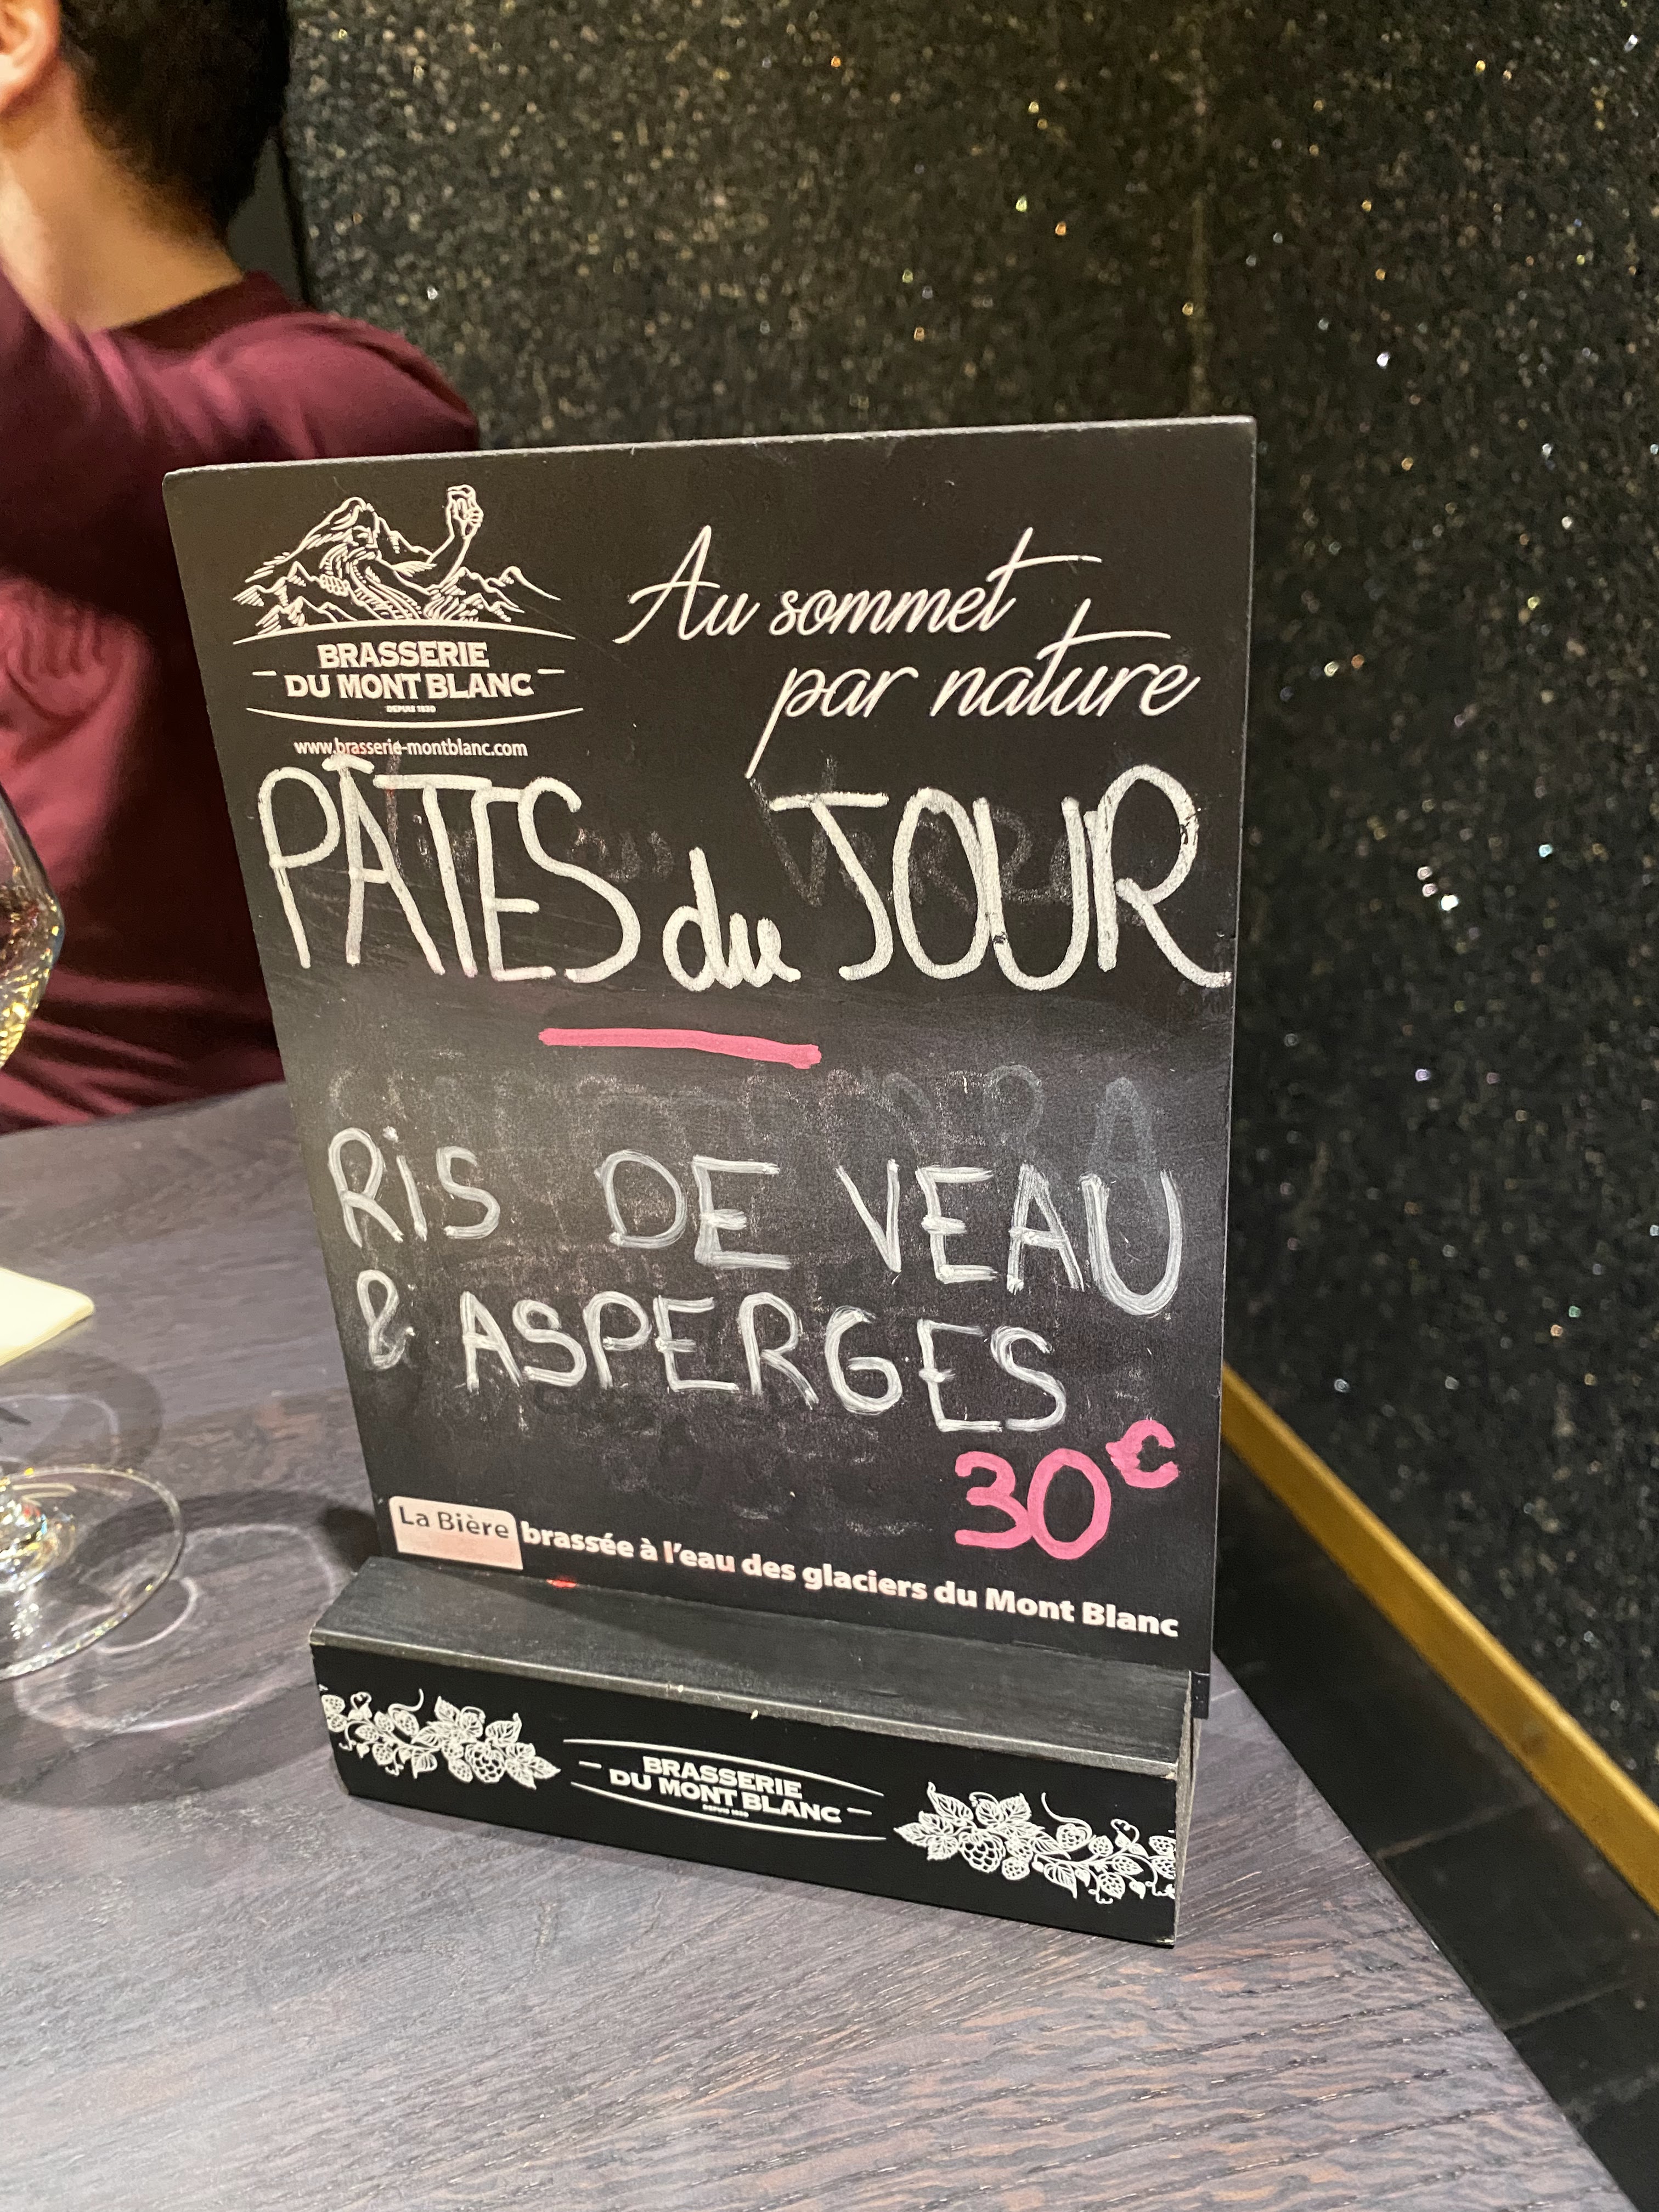 BRASSERIE
DU MONT BLANC
DEPUIS 1830
www.brasserie-montblanc.com
Au sommet
par nature
PÂTES du JOUR
RiS DE VEAU
& ASPERGES
30€
La Bière brassée à l'eau des glaciers du Mont Blanc
BRASSERIE
DU MONT BLANC
DEPUIS 1830